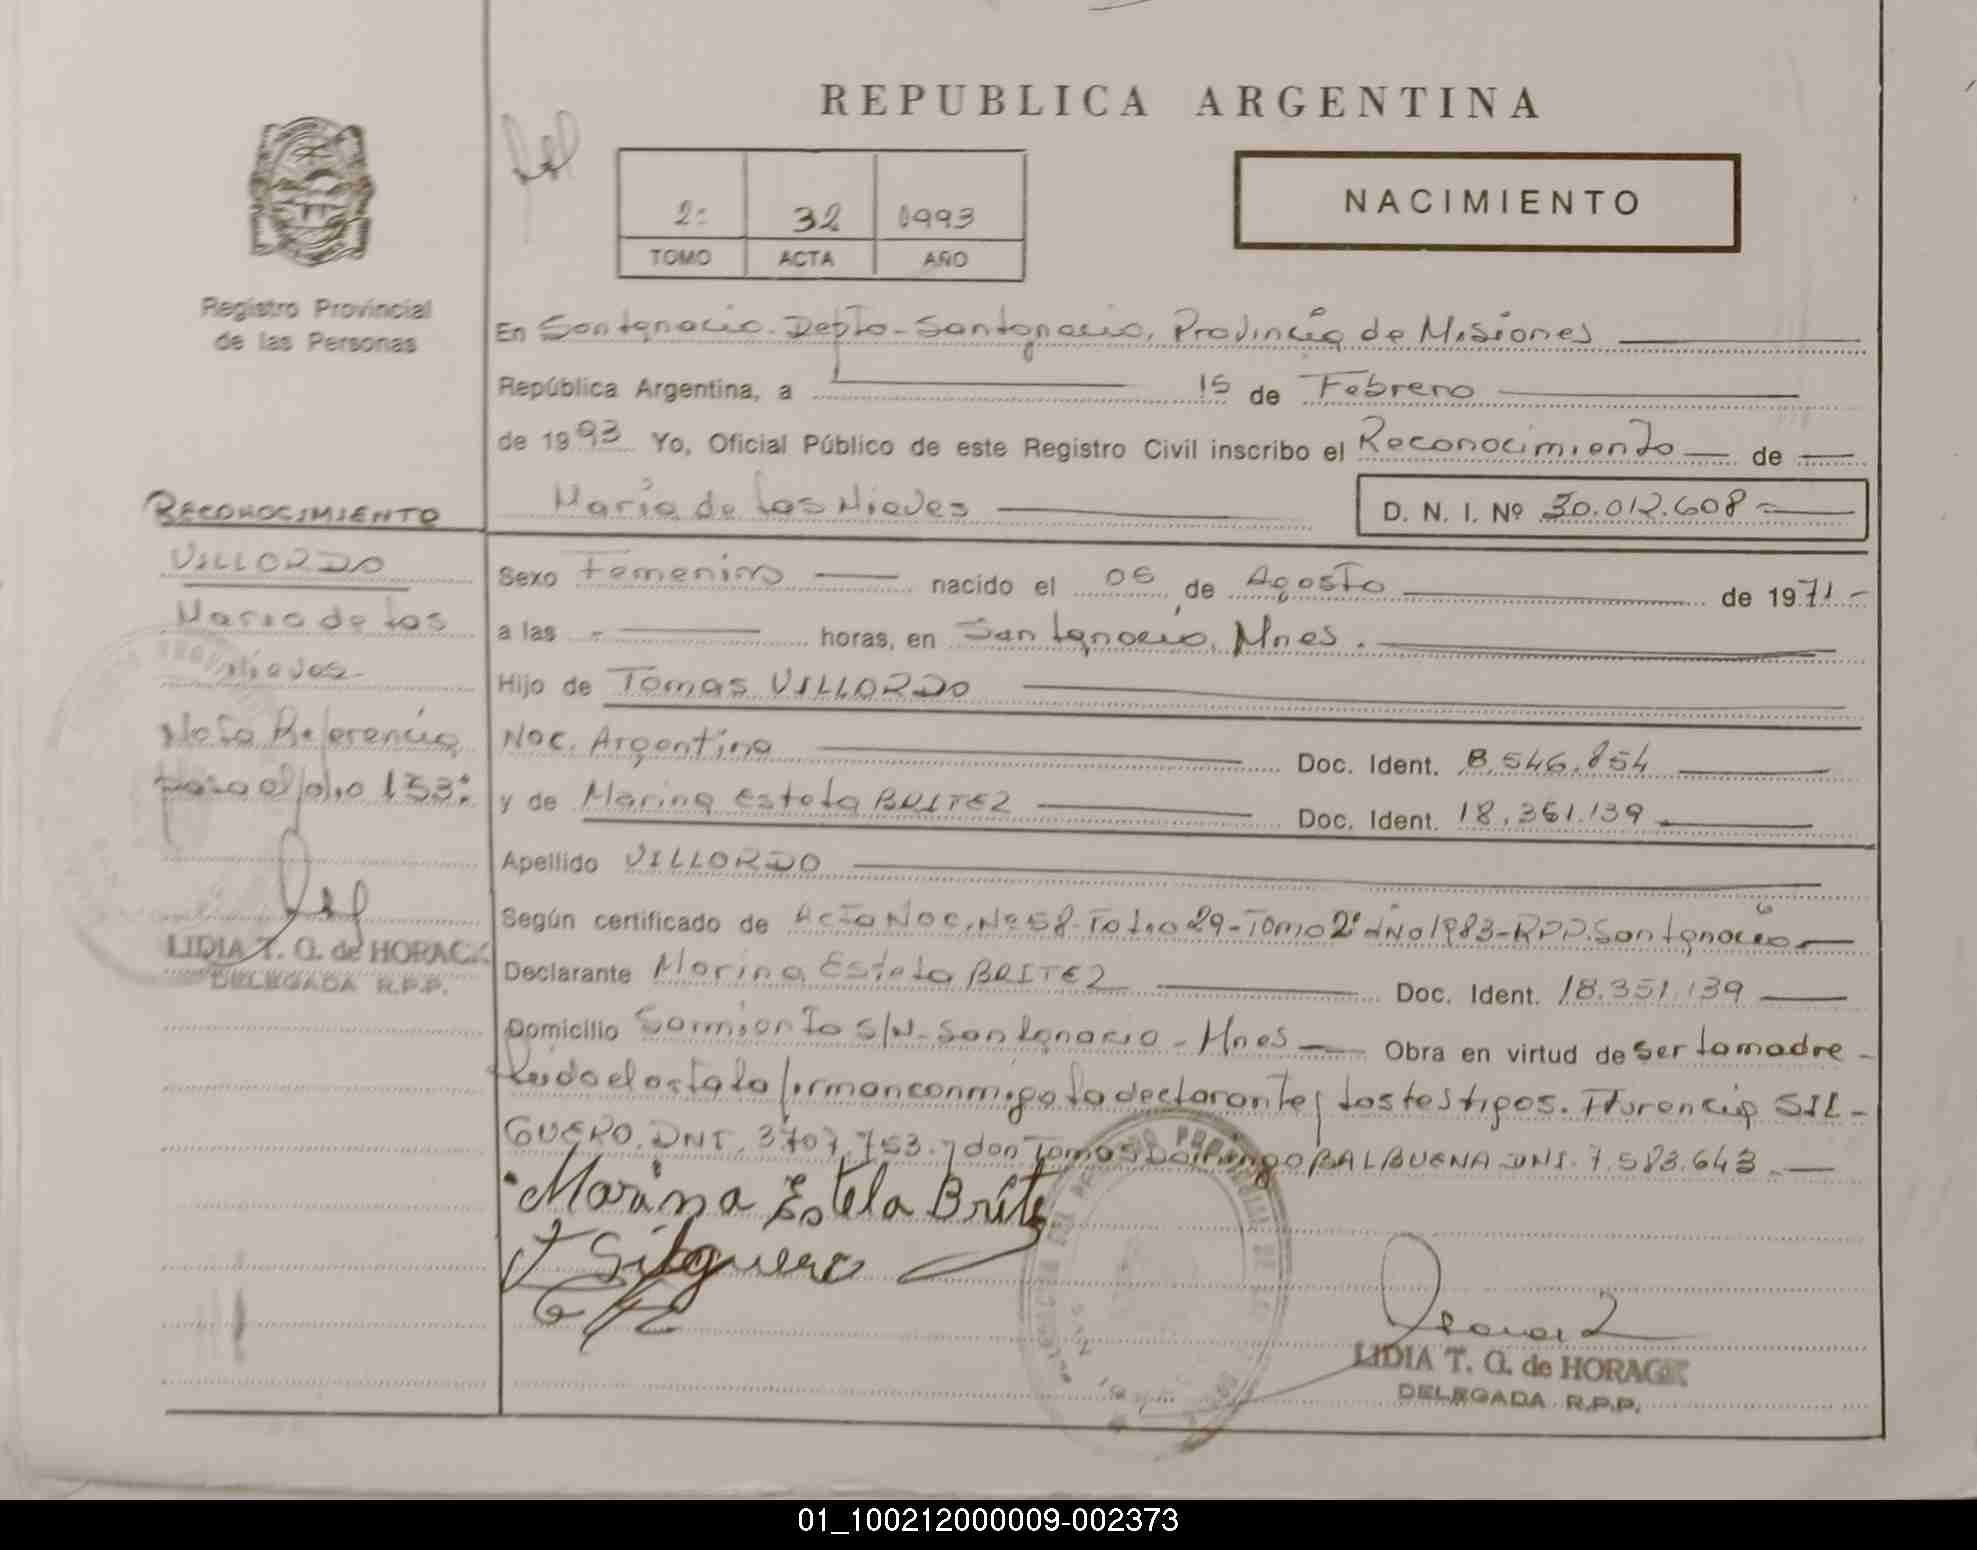 REPUBLICA ARGENTINA
NACIMIENTO
2º 32 1993
TOMO ACTA AÑO
Registro Provincial
de las Personas
En San Ignacio. Depto - San Ignacio, Provincia de Misiones
República Argentina, a 15 de Febrero
de 1993 Yo, Oficial Público de este Registro Civil inscribo el Reconocimiento de
María de las Nieves D. N. I. Nº 30.012.608
RECONOCIMIENTO
VILLORDO
Maria de las
Nieves
Nota Referencia
folio 153
LIDIA T. G. de HORACK
DELEGADA R.P.P.
Sexo Femenino nacido el 05 de Agosto de 1971
a las horas, en San Ignacio, Mnes.
Hijo de Tomas VILLORDO
Nac. Argentina Doc. Ident. 8.546.854
y de Marina Estela BRITEZ Doc. Ident. 18.351.139
Apellido VILLORDO
Según certificado de Acta Nac. Nº 58 - Folio 29 - Tomo 2º Año 1983 - RPP. San Ignacio
Declarante Marina Estela BRITEZ Doc. Ident. 18.351.139
Domicilio Sarmiento S/N - San Ignacio - Mnes Obra en virtud de ser la madre -
Leido el acta la firman conmigo la declarante y los testigos. Florencia SIL-
GUERO. DNI. 3.707.753. y don Tomas Domingo BALBUENA DNI. 7.583.643.
Marina Estela Britez
F Silguero
LIDIA T. G. de HORACK
DELEGADA R.P.P.
01_100212000009-002373